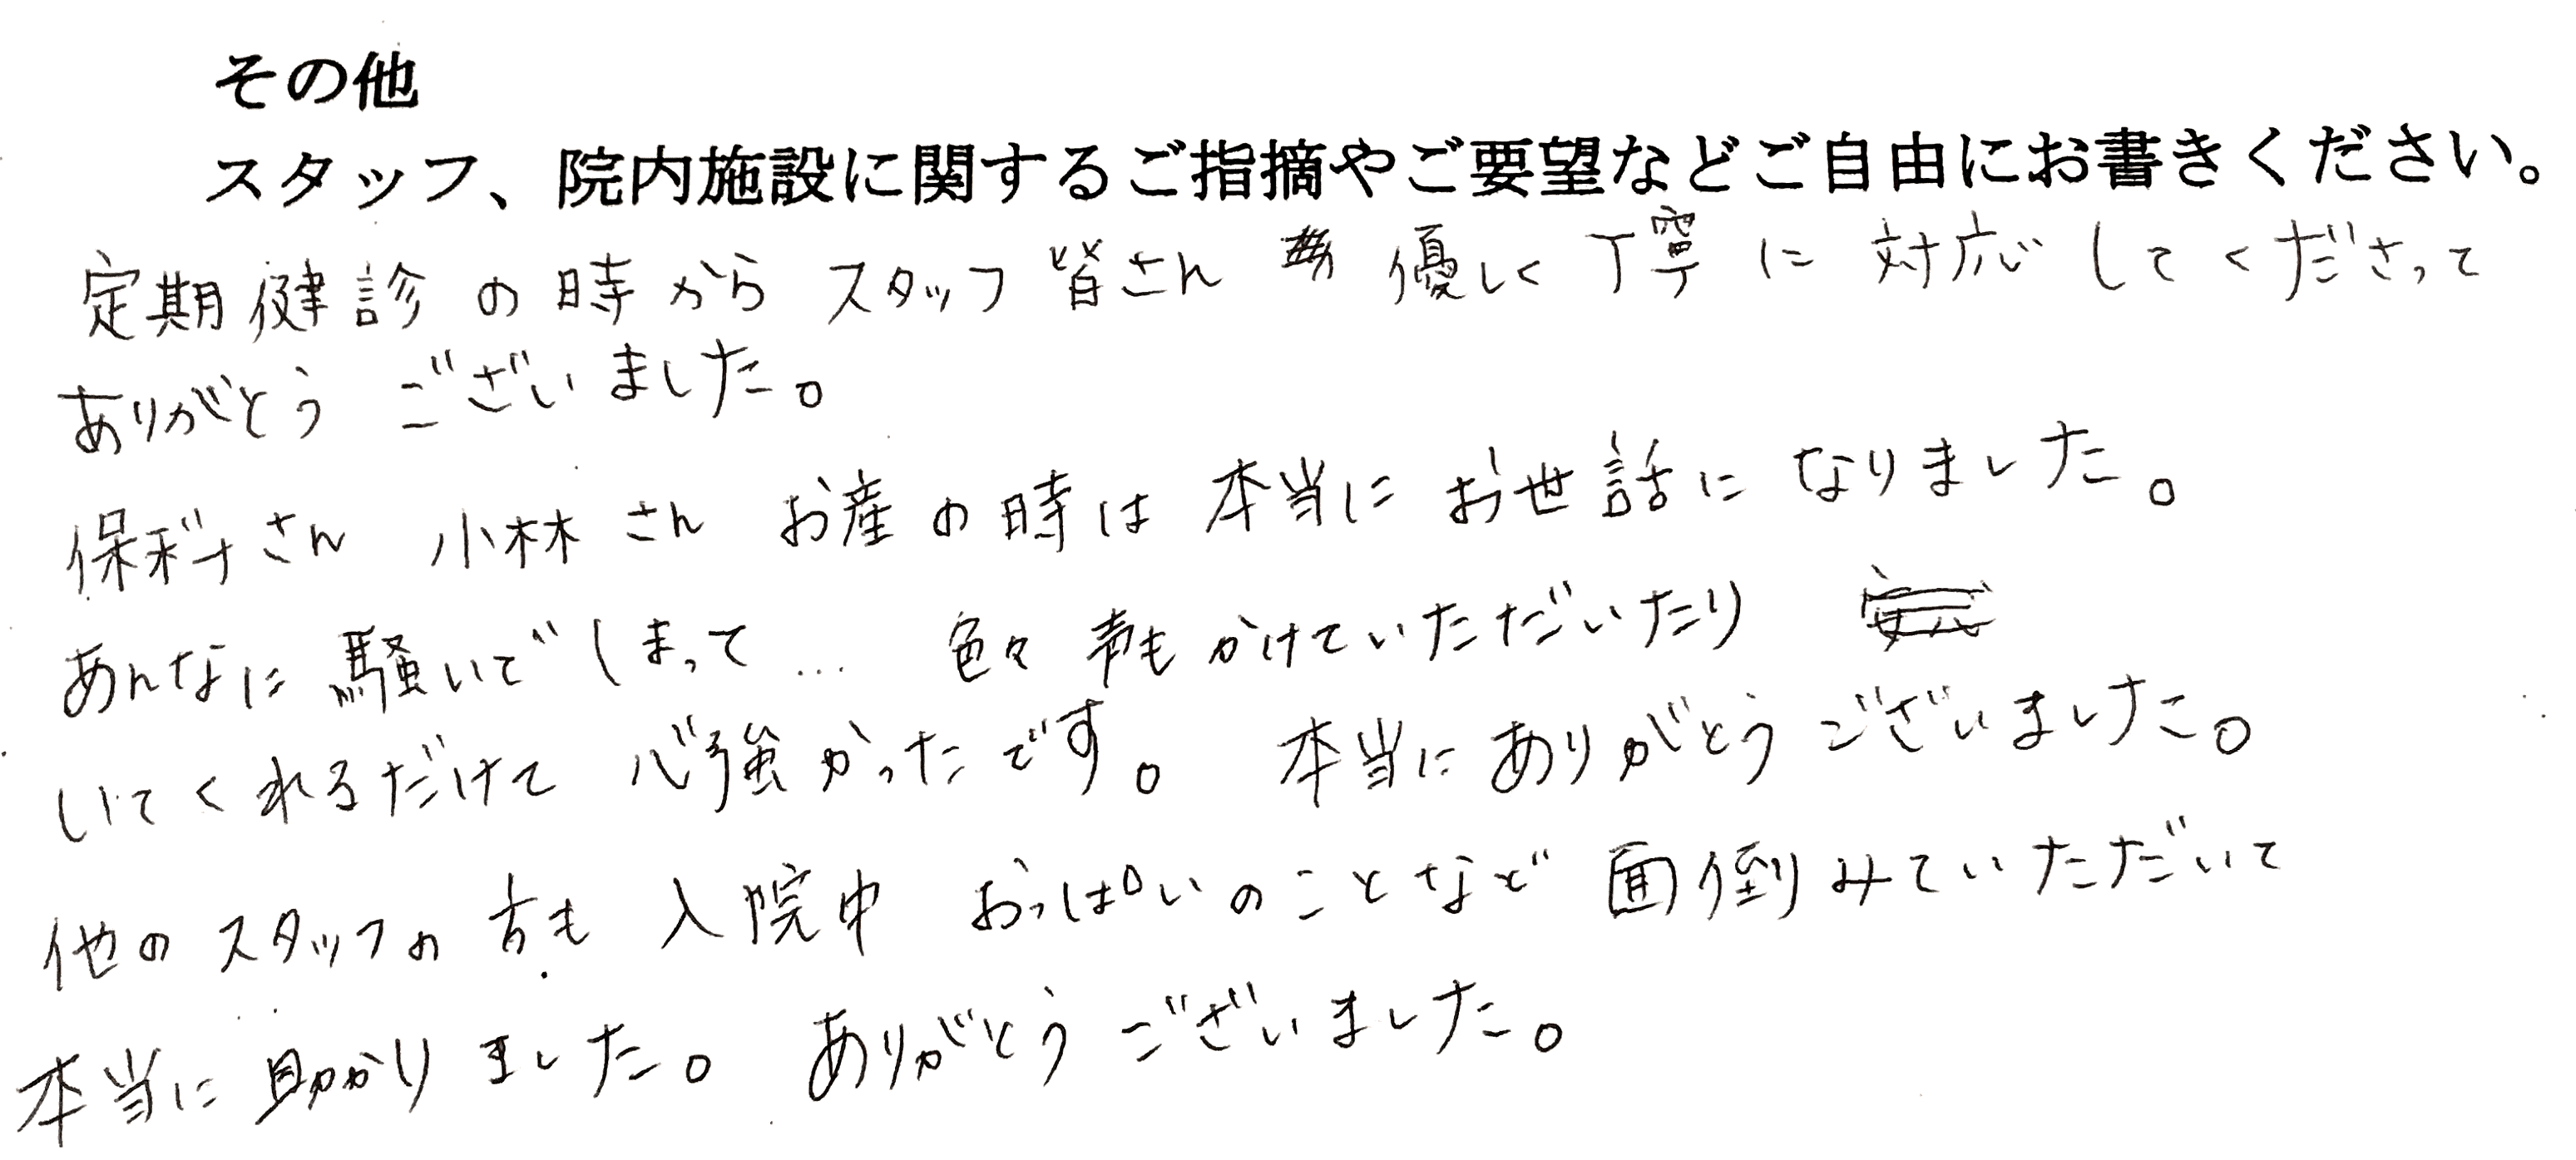 その他
スタッフ、院内施設に関するご指摘やご要望などご自由にお書きください。
定期健診の時から スタッフ 皆さん 優しく 丁寧に 対応してくださって
ありがとう ございました。
保科さん 小林さん お産の時は 本当に お世話に なりました。
あんなに 騒いでしまって… 色々 声も かけていただいたり
いてくれるだけで 心強かったです。 本当に ありがとう ございました。
他の スタッフの 方も 入院中 おっぱいのことなど 面倒みていただいて
本当に 助かりました。 ありがとう ございました。